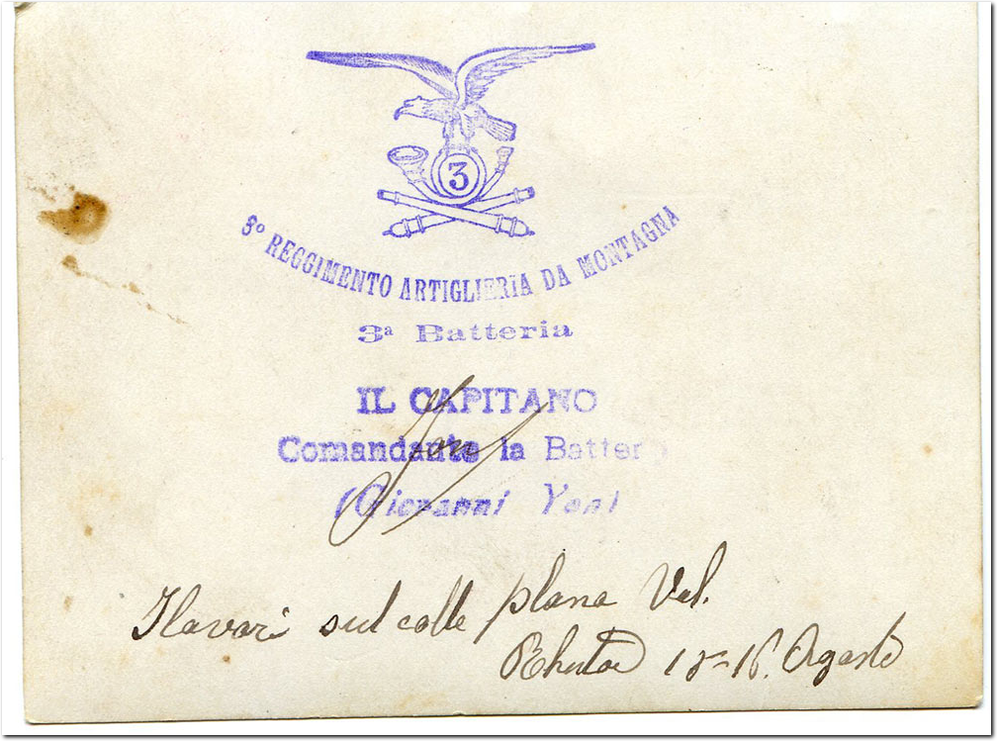 3
3º REGGIMENTO ARTIGLIERIA DA MONTAGNA
3ª Batteria
IL CAPITANO
Comandante la Batter
(Giovanni Yon)
I lavori sul colle plana Val.
15-16. Agosto